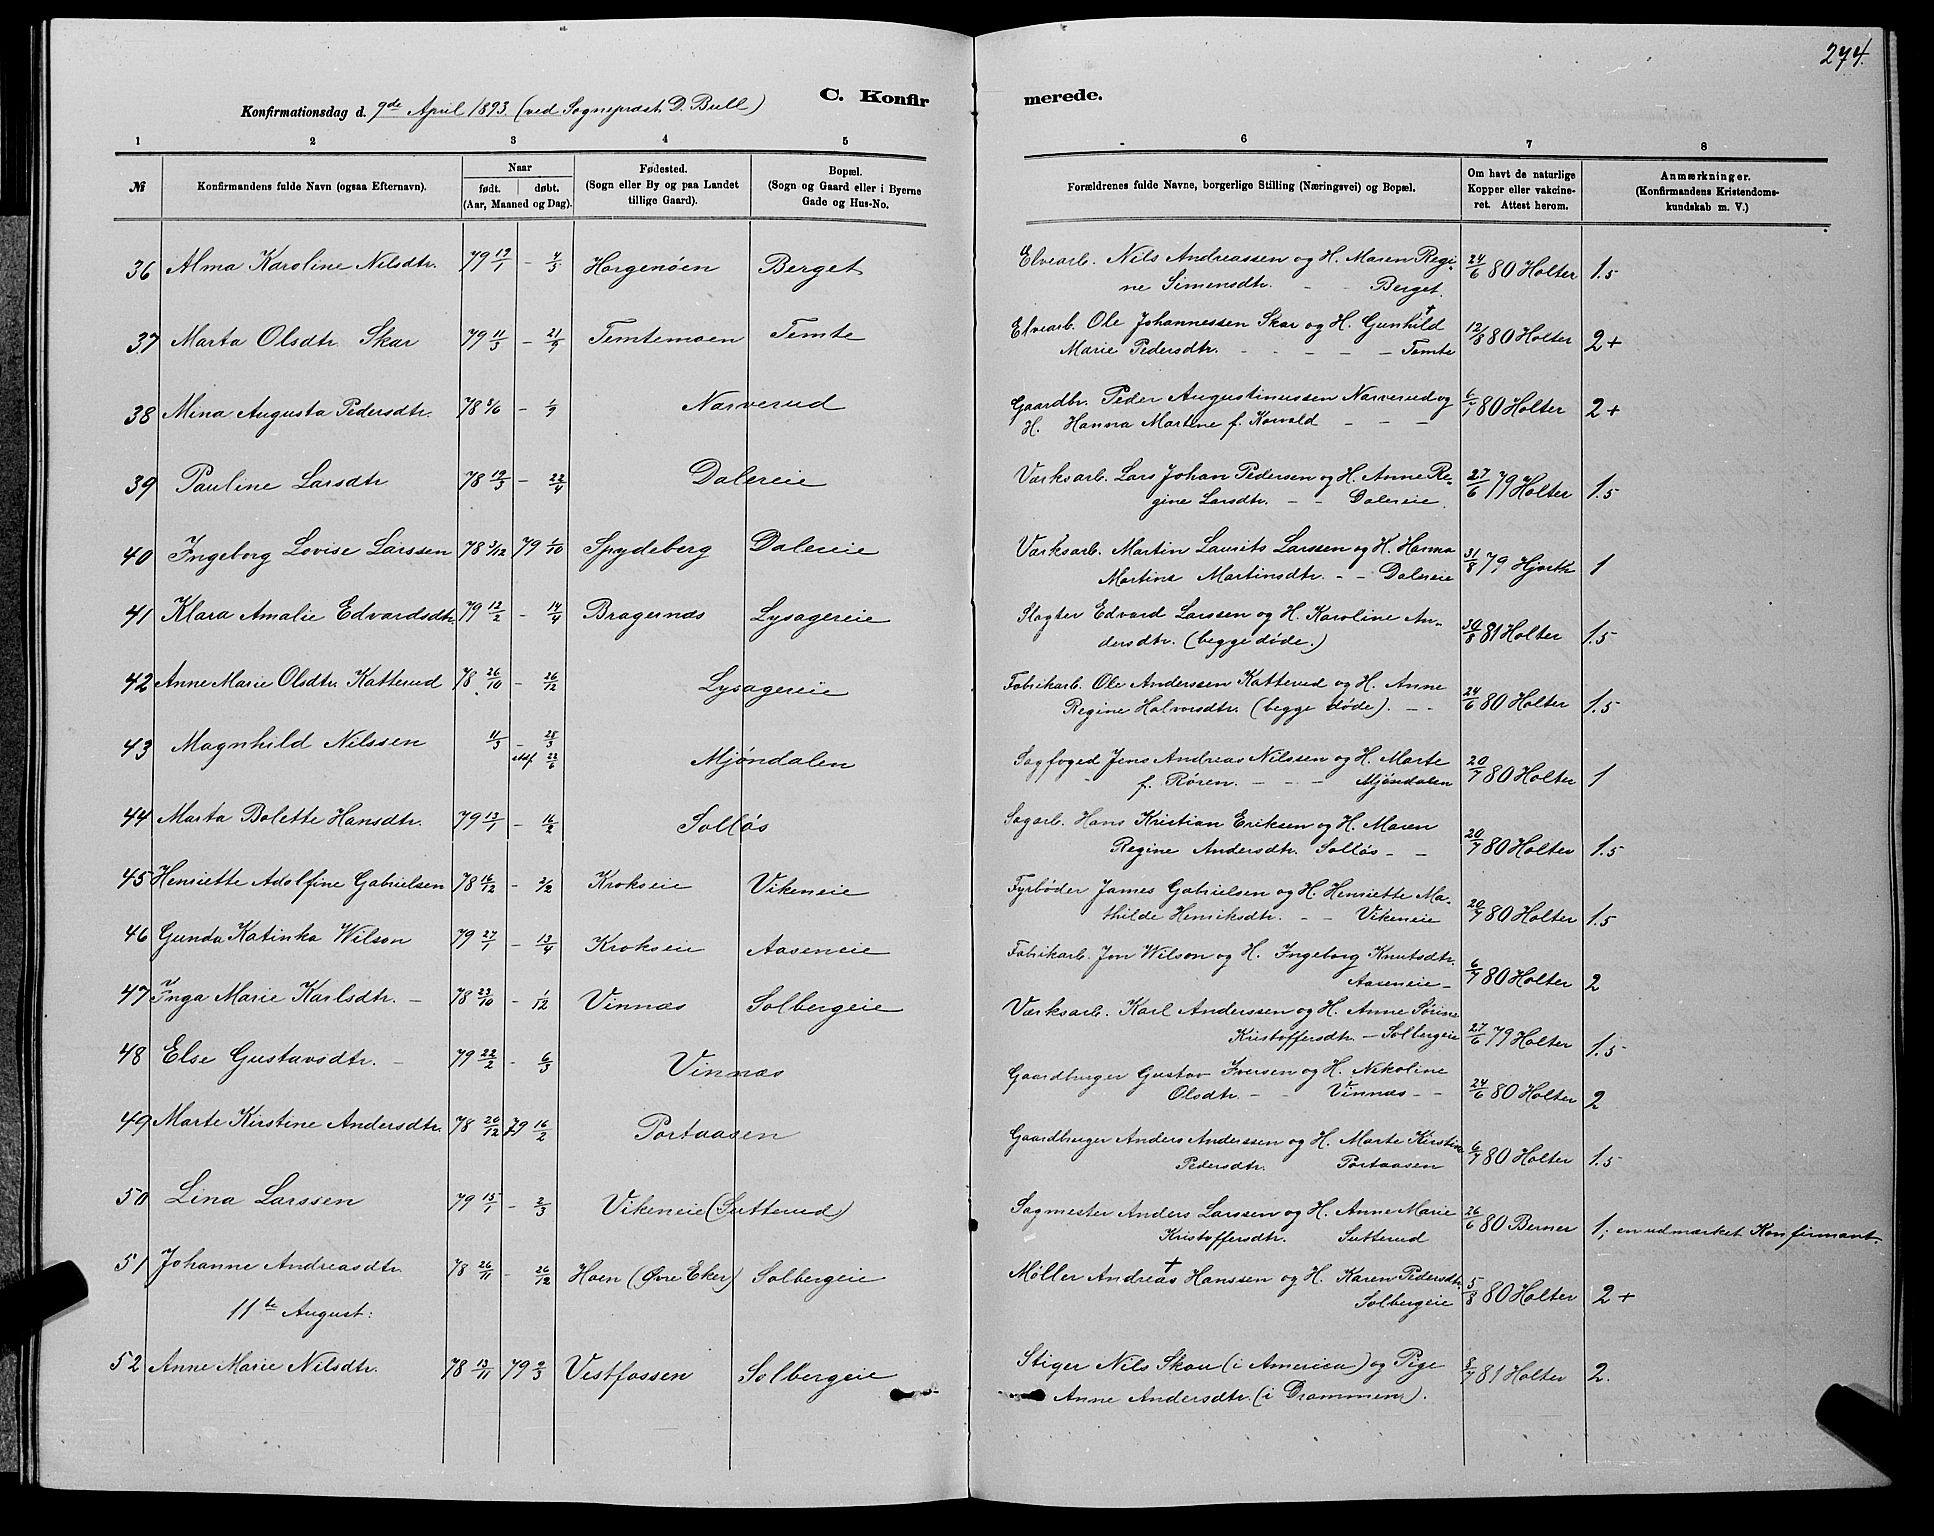 274.
C. Konfirmerede.
Konfirmationsdag d. 9de April 1893. (ved Sognepræst D. Bull)
1 2 3 4 5 6 7 8
№ Konfirmandens fulde Navn (ogsaa Efternavn). Naar født. døbt. (Aar, Maaned og Dag). Fødested. (Sogn eller By og paa Landet tillige Gaard). Bopæl. (Sogn og Gaard eller i Byerne Gade og Hus-No. Forældrenes fulde Navne, borgerlige Stilling (Næringsvei) og Bopæl. Om havt de naturlige Kopper eller vakcineret. Attest herom. Anmærkninger. (Konfirmandens Kristendomskundskab m. V.)
36 Alma Karoline Nilsdtr. 79 19/1 - 4/5 Horgenöen Berget Elvearb. Nils Andreassen og H. Maren Regi- 24/6 80 Holter 1.5
ne Simensdtr. - - Berget.
37 Marta Olsdtr. Skar 79 11/3 - 21/9 Temtemoen Temte Elvearb. Ole Johannessen Skar og H. Gunhild + 12/8 80 Holter 2+
Marie Pedersdtr. - - - - Temte
38 Mina Augusta Pedersdtr. 78 8/6 - 1/9 Narverud Gaardbr. Peder Augustinussen Narverud og 6/7 80 Holter 2+
H. Hanna Martine f. Korvald - - -
39 Pauline Larsdtr 78 19/3 - 22/4 Dalereie Værksarb. Lars Johan Pedersen og H. Anne Re- 27/6 79 Holter 1.5
gine Larsdtr. - - Dalereie.
40 Ingeborg Lovise Larssen 78 3/12 79 1/10 Spydeberg Dalereie Værksarb. Martin Laurits Larssen og H. Hanna 31/8 79 Hjorth 1
Martina Martinsdtr. - - Dalereie
41 Klara Amalie Edvardsdtr. 79 12/2 - 14/4 Bragernæs Lysagereie Slagter Edvard Larssen og H. Karoline An- 30/8 81 Holter 1.5
dersdtr. (begge döde.)
42 Anne Marie Olsdtr. Katterud 78 26/10 - 26/12 Lysagereie Fabrikarb. Ole Anderssen Katterud og H. Anne 24/6 80 Holter 1.5
Regine Halvorsdtr. (begge døde). - -
43 Magnhild Nilssen 11/3 - 28/3 Mjöndalen Sagfoged Jens Andreas Nilssen og H. Marte 20/7 80 Holter 1
stadf. 22/6 f. Røren. - - - Mjöndalen
44 Marta Bolette Hansdtr. 79 13/1 - 16/2 Solløs Sagarb. Hans Kristian Eriksen og H. Maren 20/7 80 Holter 1.5
Regine Andersdtr. Solløs - -
45 Henriette Adolfine Gabrielsen 78 16/12 - 2/2 Krokseie Vikeneie Fyrbøder James Gabrielsen og H. Henriette Ma- 20/7 80 Holter 1.5
thilde Henriksdtr. - - Vikeneie
46 Gunda Katinka Wilson 79 27/1 - 13/4 Krokseie Aaseneie Fabrikarb. Jon Wilson og H. Ingeborg Knutsdtr. 6/7 80 Holter 2
Aaseneie -
47 Inga Marie Karlsdtr. - 78 23/10 - 1/12 Vinnæs Solbergeie Værksarb. Karl Anderssen og H. Anne Sørine 27/6 79 Holter 1.5
Kristoffersdtr. - Solbergeie
48 Else Gustavsdtr. - 79 22/2 - 6/3 Vinnæs Gaardbruger Gustav Iversen og H. Nikoline 24/6 80 Holter 2
Olsdtr. - - Vinnæs - -
49 Marte Kirstine Andersdtr. 78 20/12 79 16/2 Portaasen Gaardbruger Anders Anderssen og H. Marte Kirstine 6/7 80 Holter 1.5
Pedersdtr. Portaasen
50 Lina Larssen 79 15/1 - 2/3 Vikeneie (Sutterud) Sagmester Anders Larssen og H. Anne Marie 26/6 80 Berner 1; en udmærket Konfirmant.
Kristoffersdtr. Sutterud
51 Johanne Andreasdtr. 78 26/11 - 26/12 Hoen (Øvre Eker) Solbergeie Møller Andreas + Hanssen og H. Karen Pedersdtr. 5/8 80 Holter 2+
Solbergeie
11te August:
52 Anne Marie Nilsdtr. 78 13/11 79 9/3 Vestfossen Solbergeie Stiger Nils Skau (i America) og Pige 8/7 81 Holter 2.
Anne Andersdtr. (i Drammen).